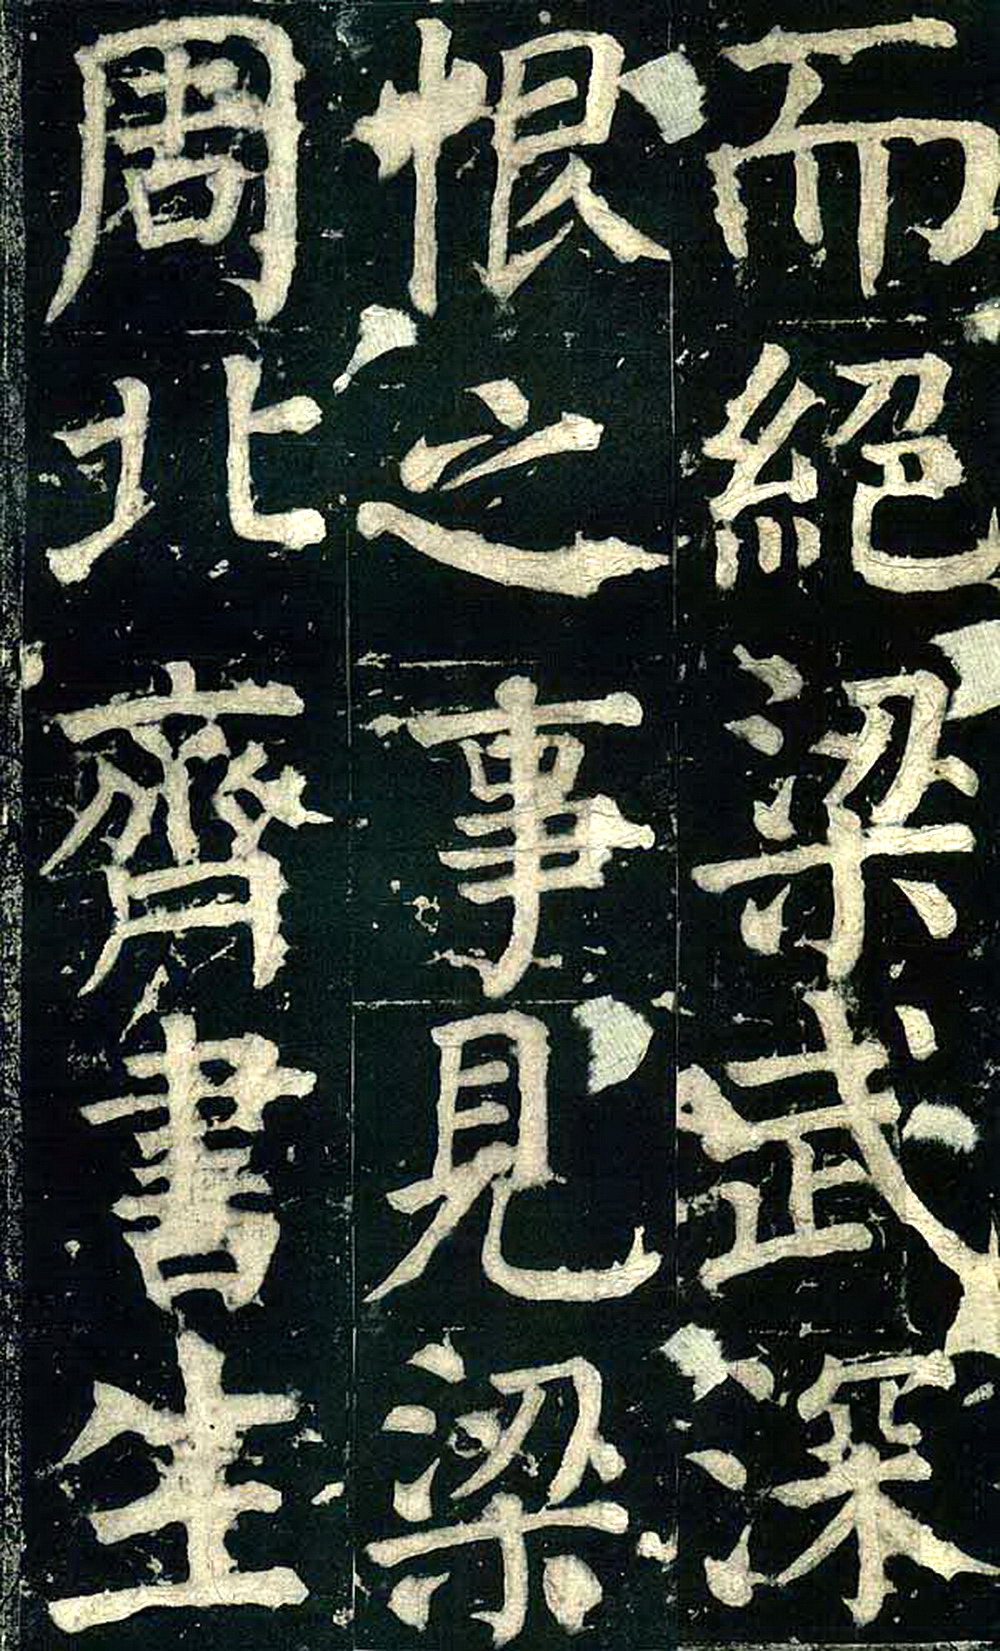 而絕梁武深
恨之事見梁
周北齊書生